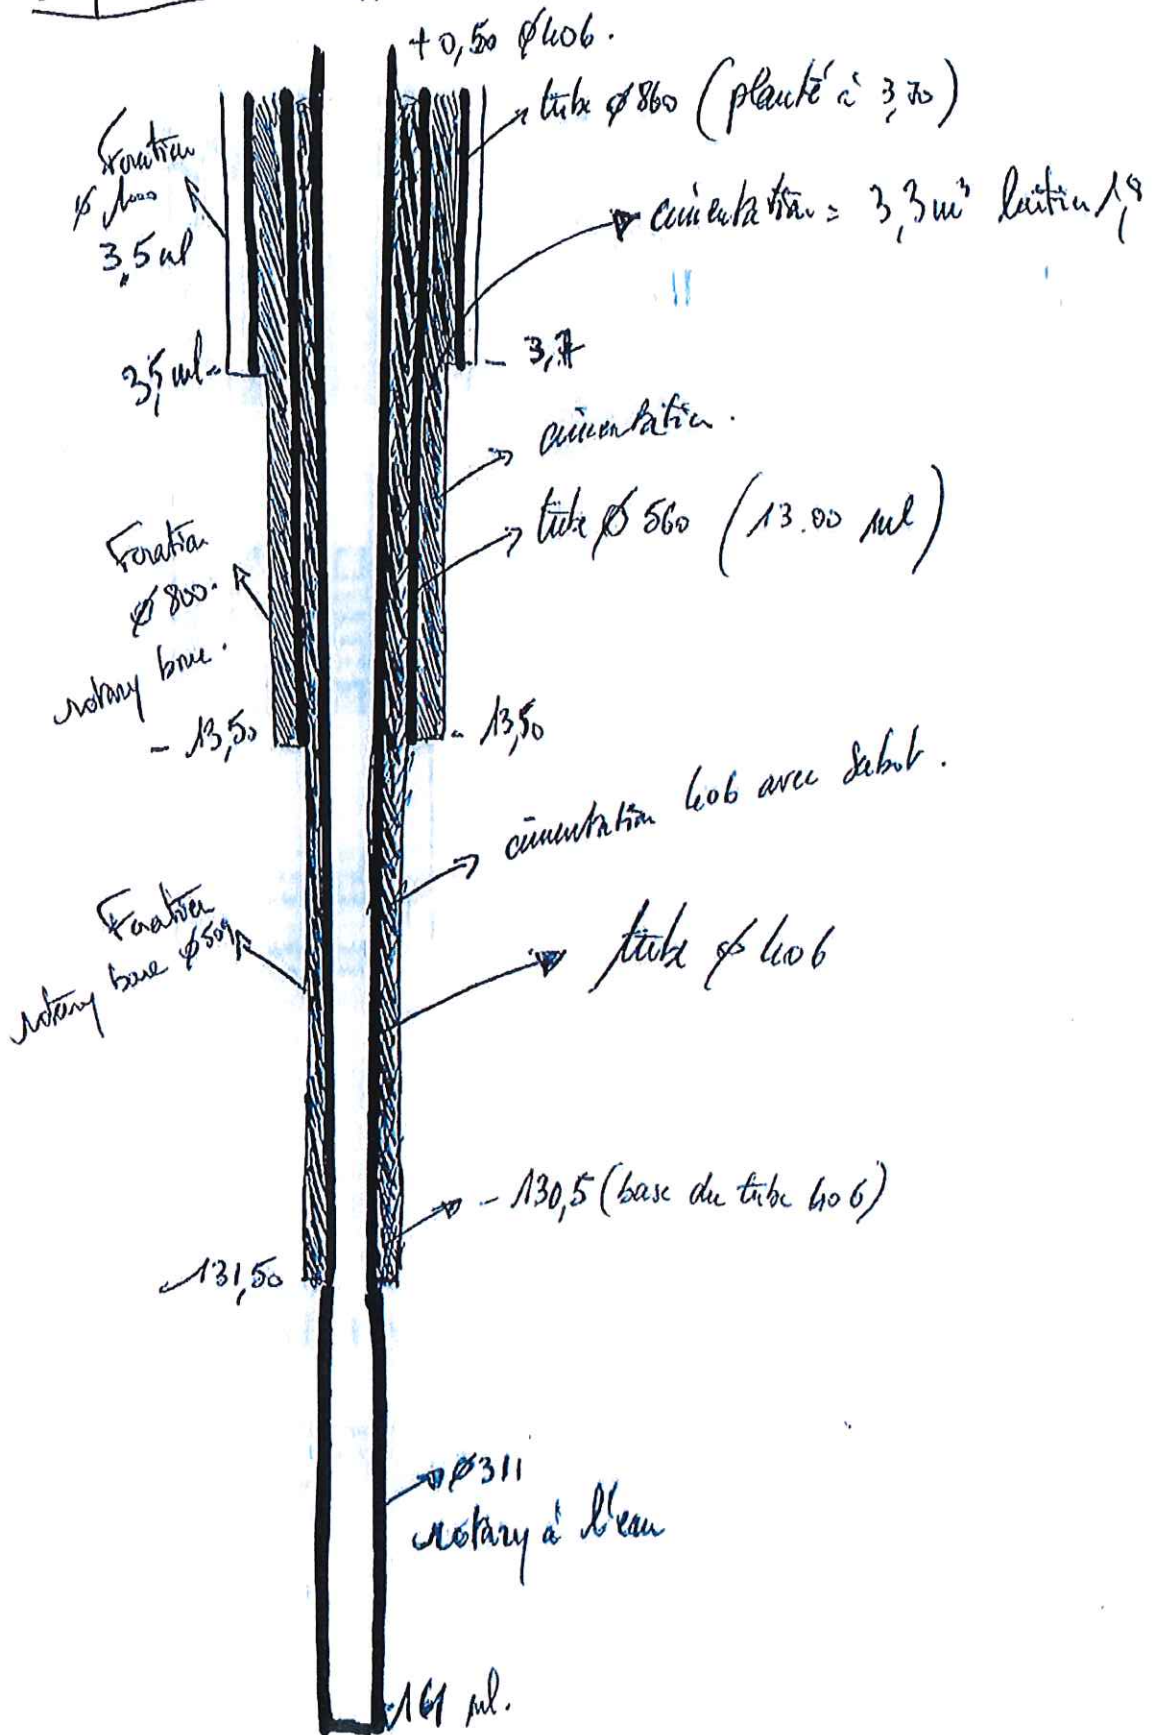 +0,50 ø406.
tube ø860 (planté à 3,70)
Foration
ø 1000
3,5 ml
cimentation = 3,3 m³ laitier 1,8
3,5 ml
- 3,7
cimentation.
tube ø 560 (13.00 ml)
Foration
ø 800.
rotary boue.
- 13,50
- 13,50
cimentation 406 avec sabot.
Foration
rotary boue ø509
tube ø 406
- 130,5 (base du tube 406)
-131,50
ø311
rotary à l'eau
161 ml.